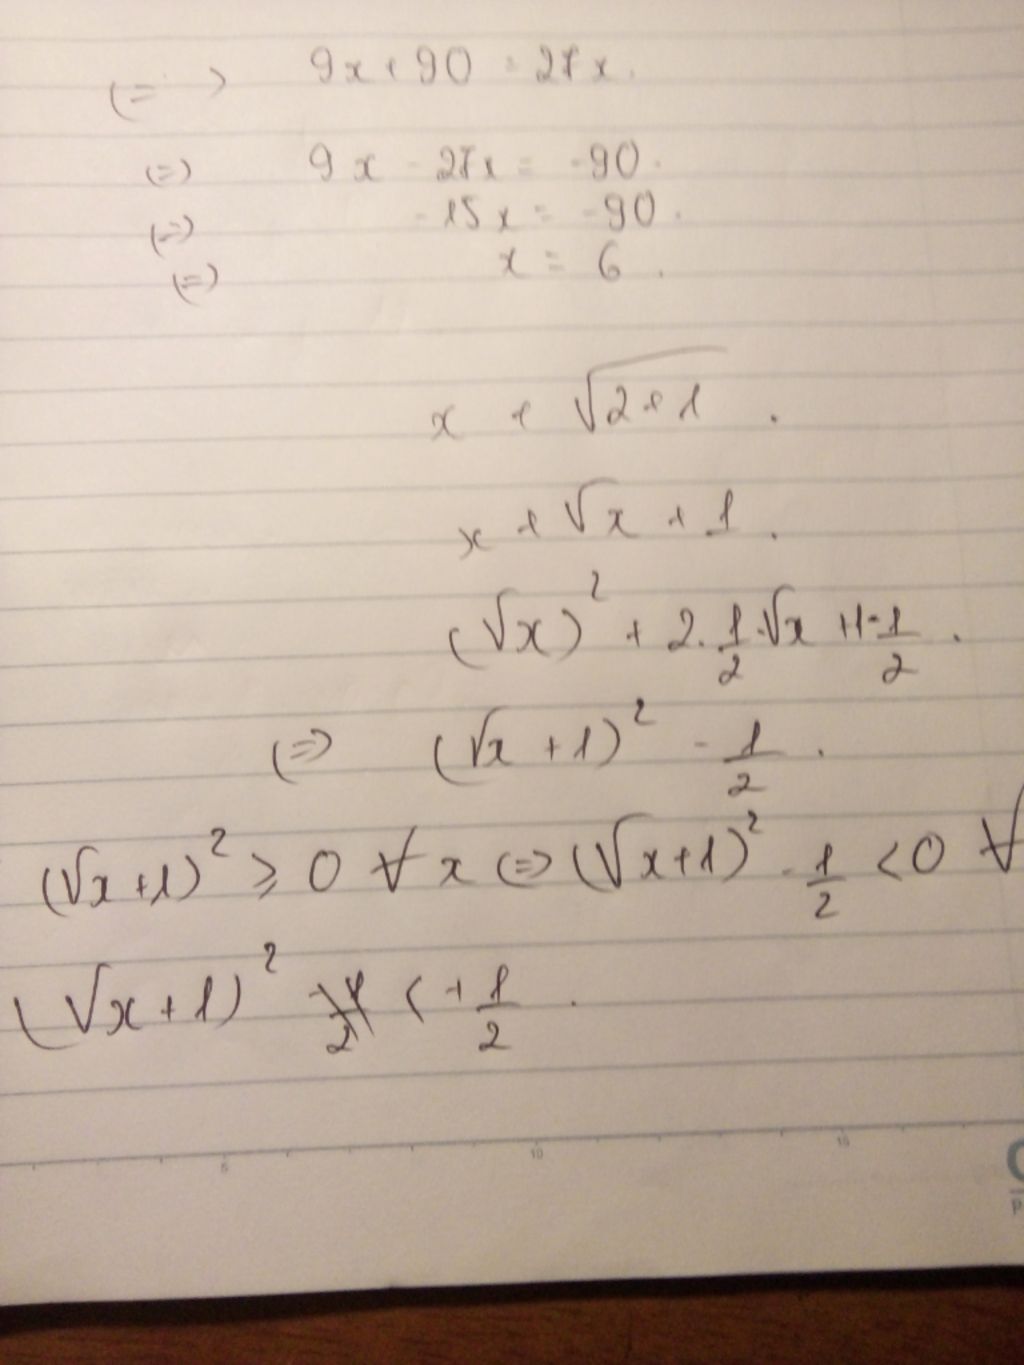 (=> 9x + 90 = 27x.
(=) 9x - 27x = -90.
(=) -15x = -90.
(=) x = 6.
x + √2+1 .
x + √x + 1 .
(√x)² + 2.1/2.√x +1-1/2 .
(=) (√x +1)² - 1/2 .
(√x +1)² ≥ 0 ∀ x (=) (√x+1)² - 1/2 < 0 ∀
(√x +1)² < + 1/2 .
5 10 15